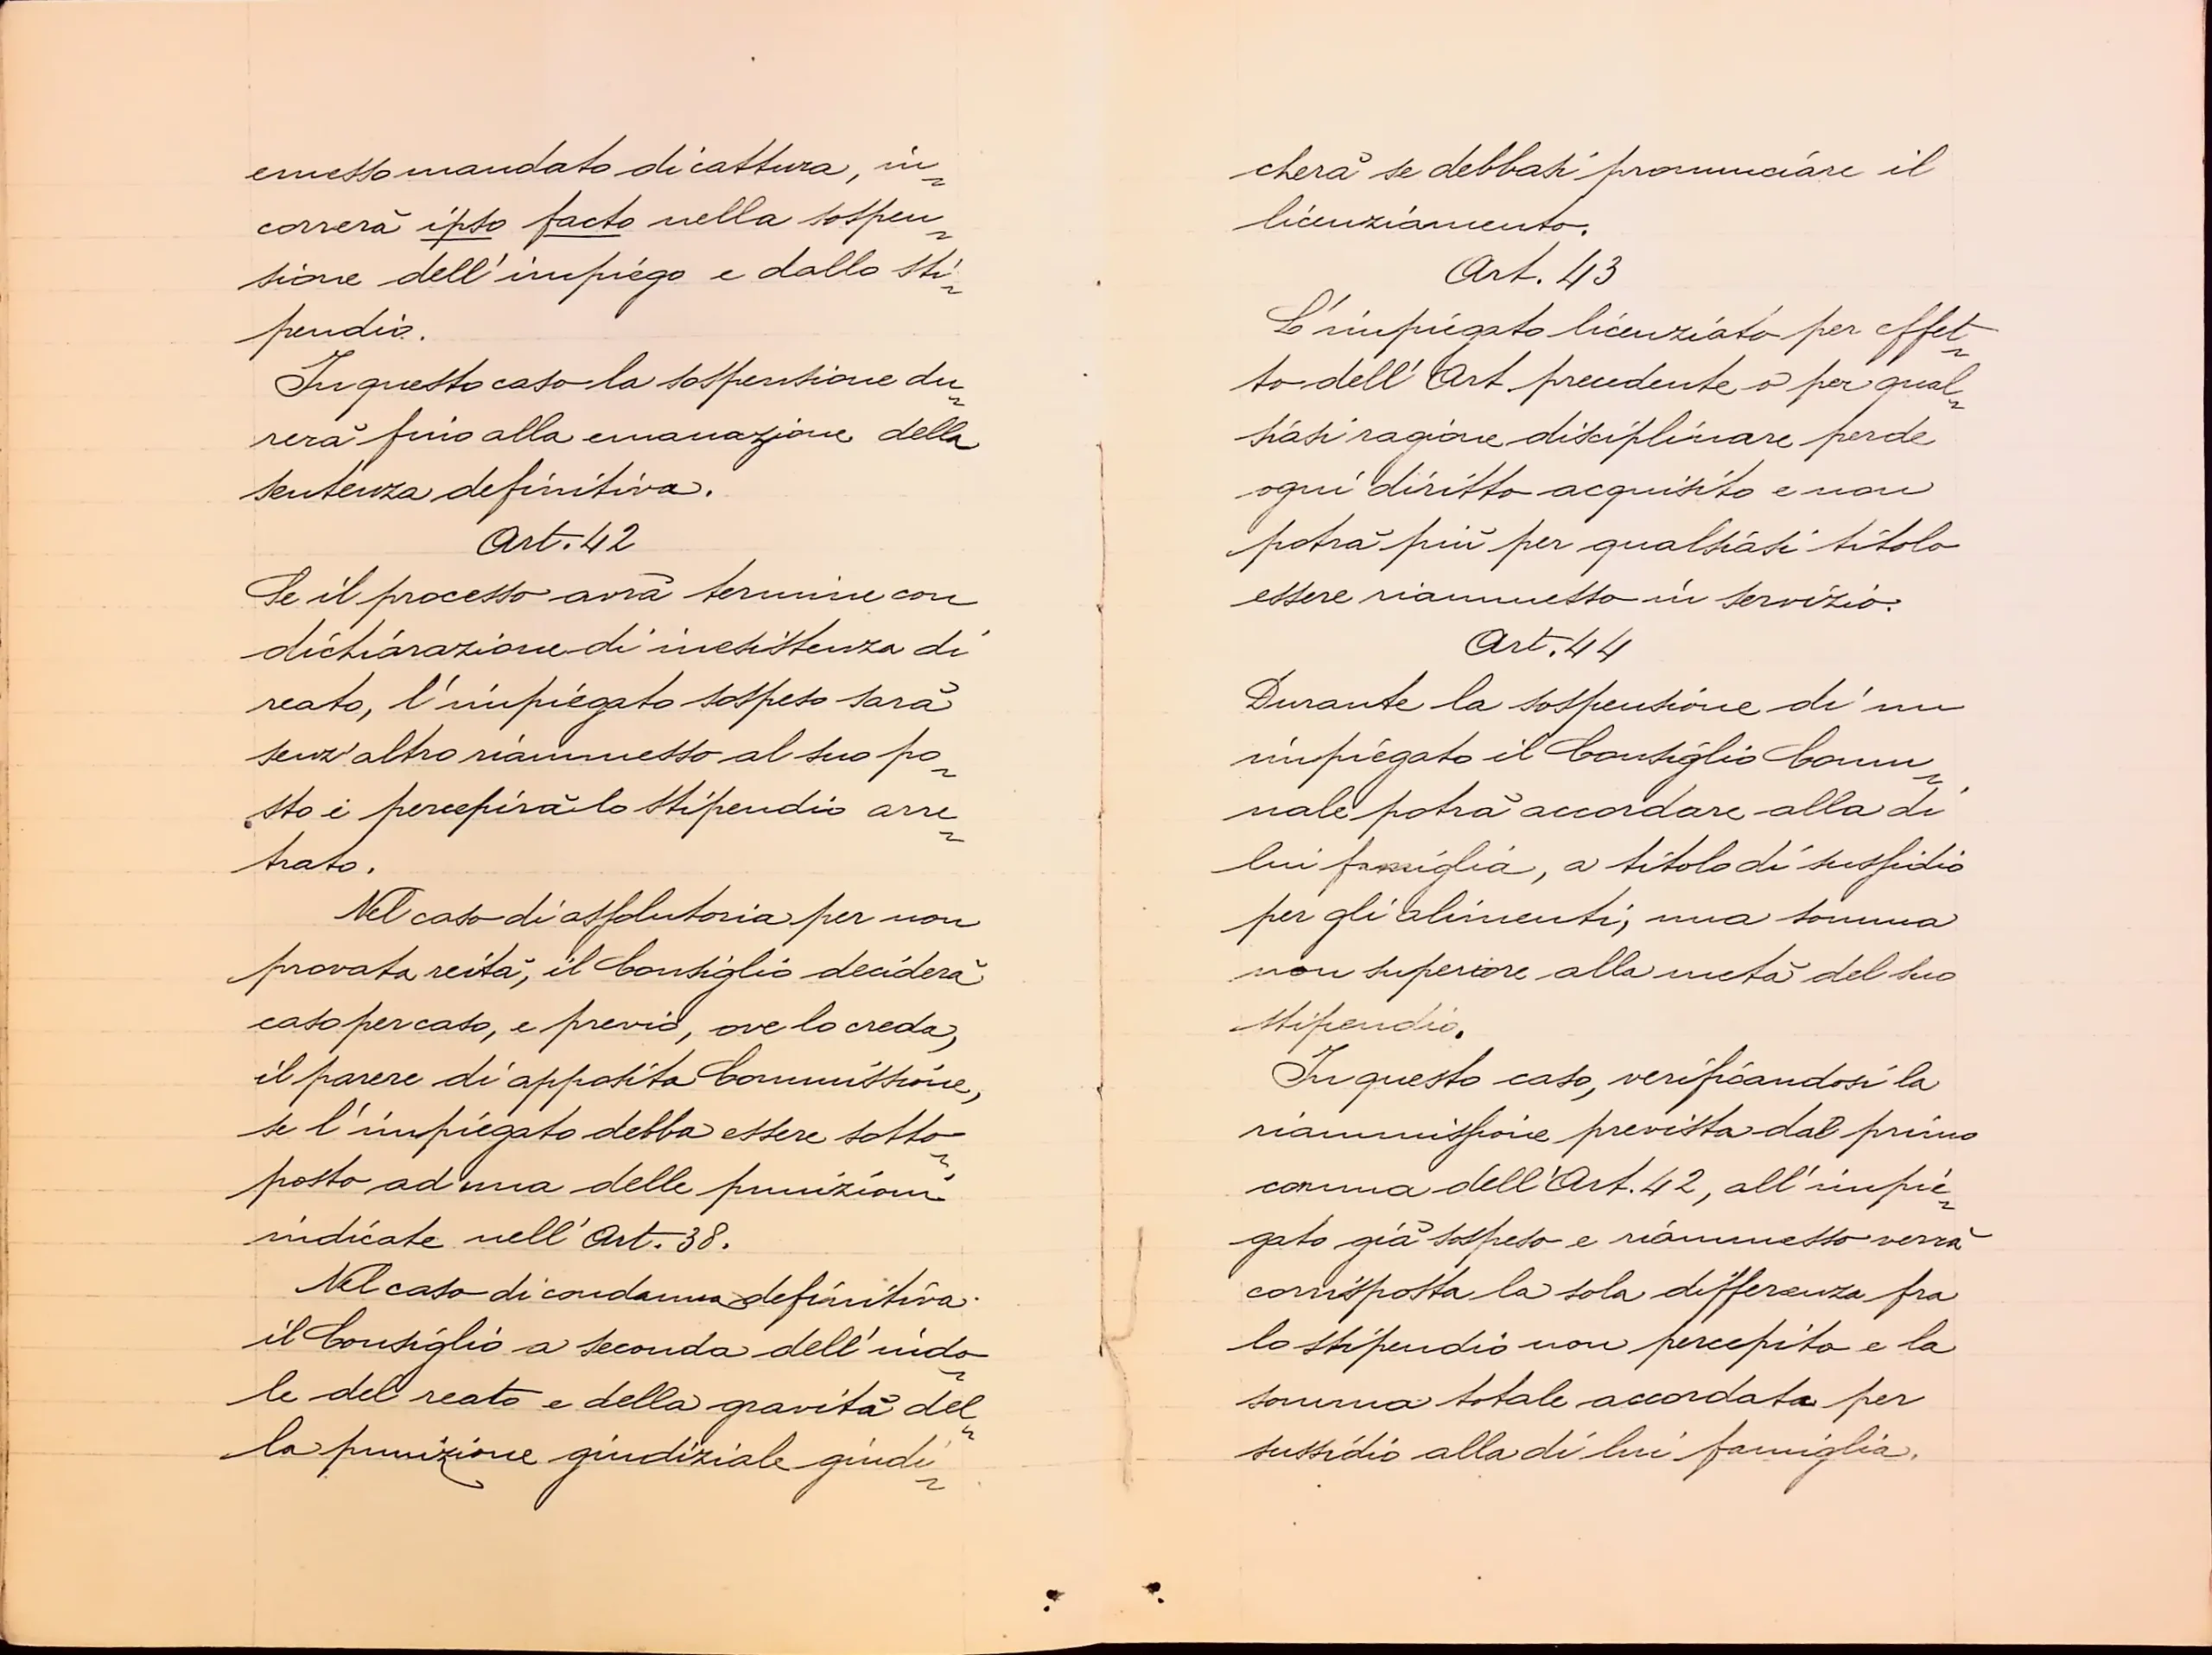 emesso mandato di cattura, in=
correrà ipso facto nella sospen=
sione dell'impiego e dallo sti=
pendio.
In questo caso la sospensione du=
rerà fino alla emanazione della
sentenza definitiva.
Art. 42
Se il processo avrà termine con
dichiarazione di inesistenza di
reato, l'impiegato sospeso sarà
senz'altro riammesso al suo po=
sto e percepirà lo stipendio arre=
trato.
Nel caso di assolutoria per non
provata reità, il Consiglio deciderà
caso per caso, e previo, ove lo creda,
il parere di apposita Commissione,
se l'impiegato debba essere sotto=
posto ad una delle punizioni
indicate nell'Art. 38.
Nel caso di condanna definitiva
il Consiglio a seconda dell'indo=
le del reato e della gravità del=
la punizione giudiziale giudi=
cherà se debbasi pronunciare il
licenziamento.
Art. 43
L'impiegato licenziato per effet=
to dell'Art precedente o per qual=
siasi ragione disciplinare perde
ogni diritto acquisito e non
potrà più per qualsiasi titolo
essere riammesso in servizio.
Art. 44
Durante la sospensione di un
impiegato il Consiglio Comu=
nale potrà accordare alla di
lui famiglia, a titolo di sussidio
per gli alimenti, una somma
non superiore alla metà del suo
stipendio.
In questo caso, verificandosi la
riammissione prevista dal primo
comma dell'Art. 42, all'impie=
gato già sospeso e riammesso verrà
corrisposta la sola differenza fra
lo stipendio non percepito e la
somma totale accordata per
sussidio alla di lui famiglia.